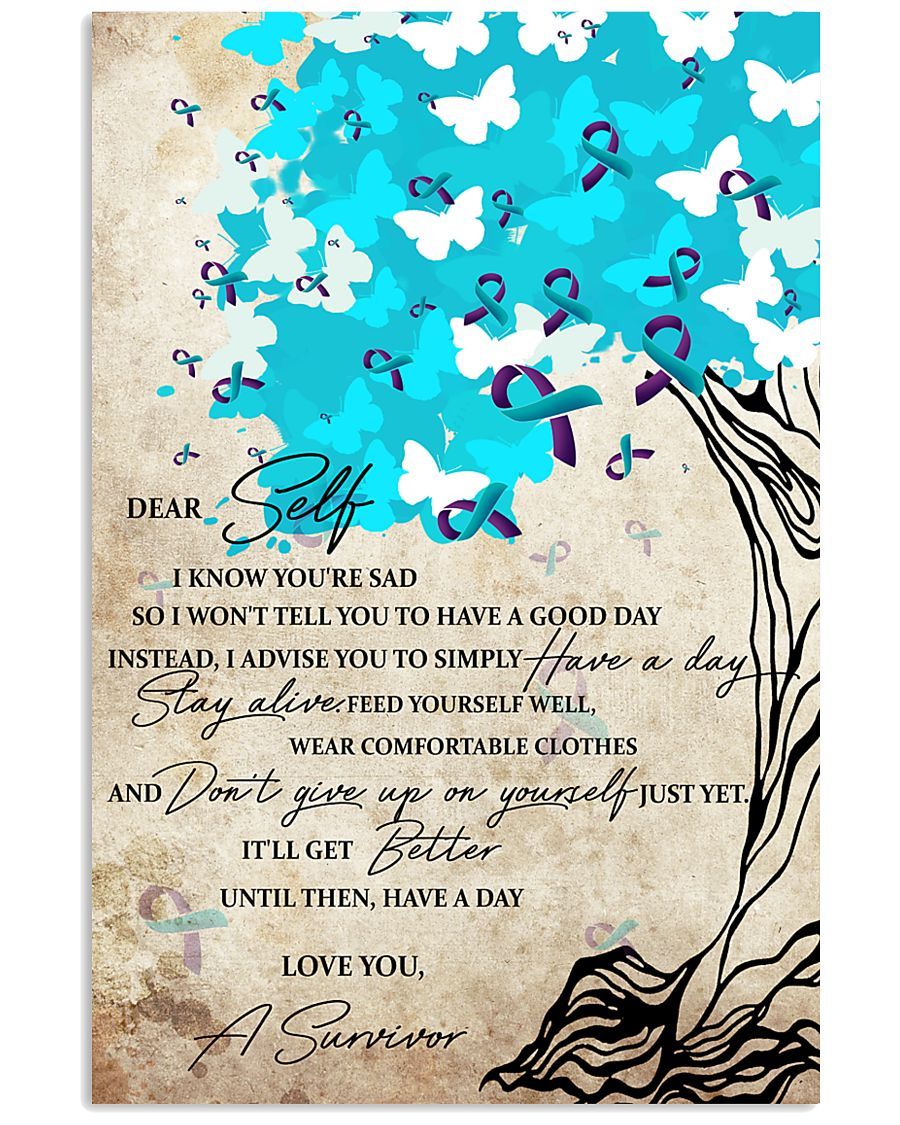 DEAR Self
I KNOW YOU'RE SAD
SO I WON'T TELL YOU TO HAVE A GOOD DAY
INSTEAD, I ADVISE YOU TO SIMPLY Have a day
Stay alive. FEED YOURSELF WELL,
WEAR COMFORTABLE CLOTHES
AND Don't give up on yourself JUST YET.
IT'LL GET Better
UNTIL THEN, HAVE A DAY
LOVE YOU,
A Survivor